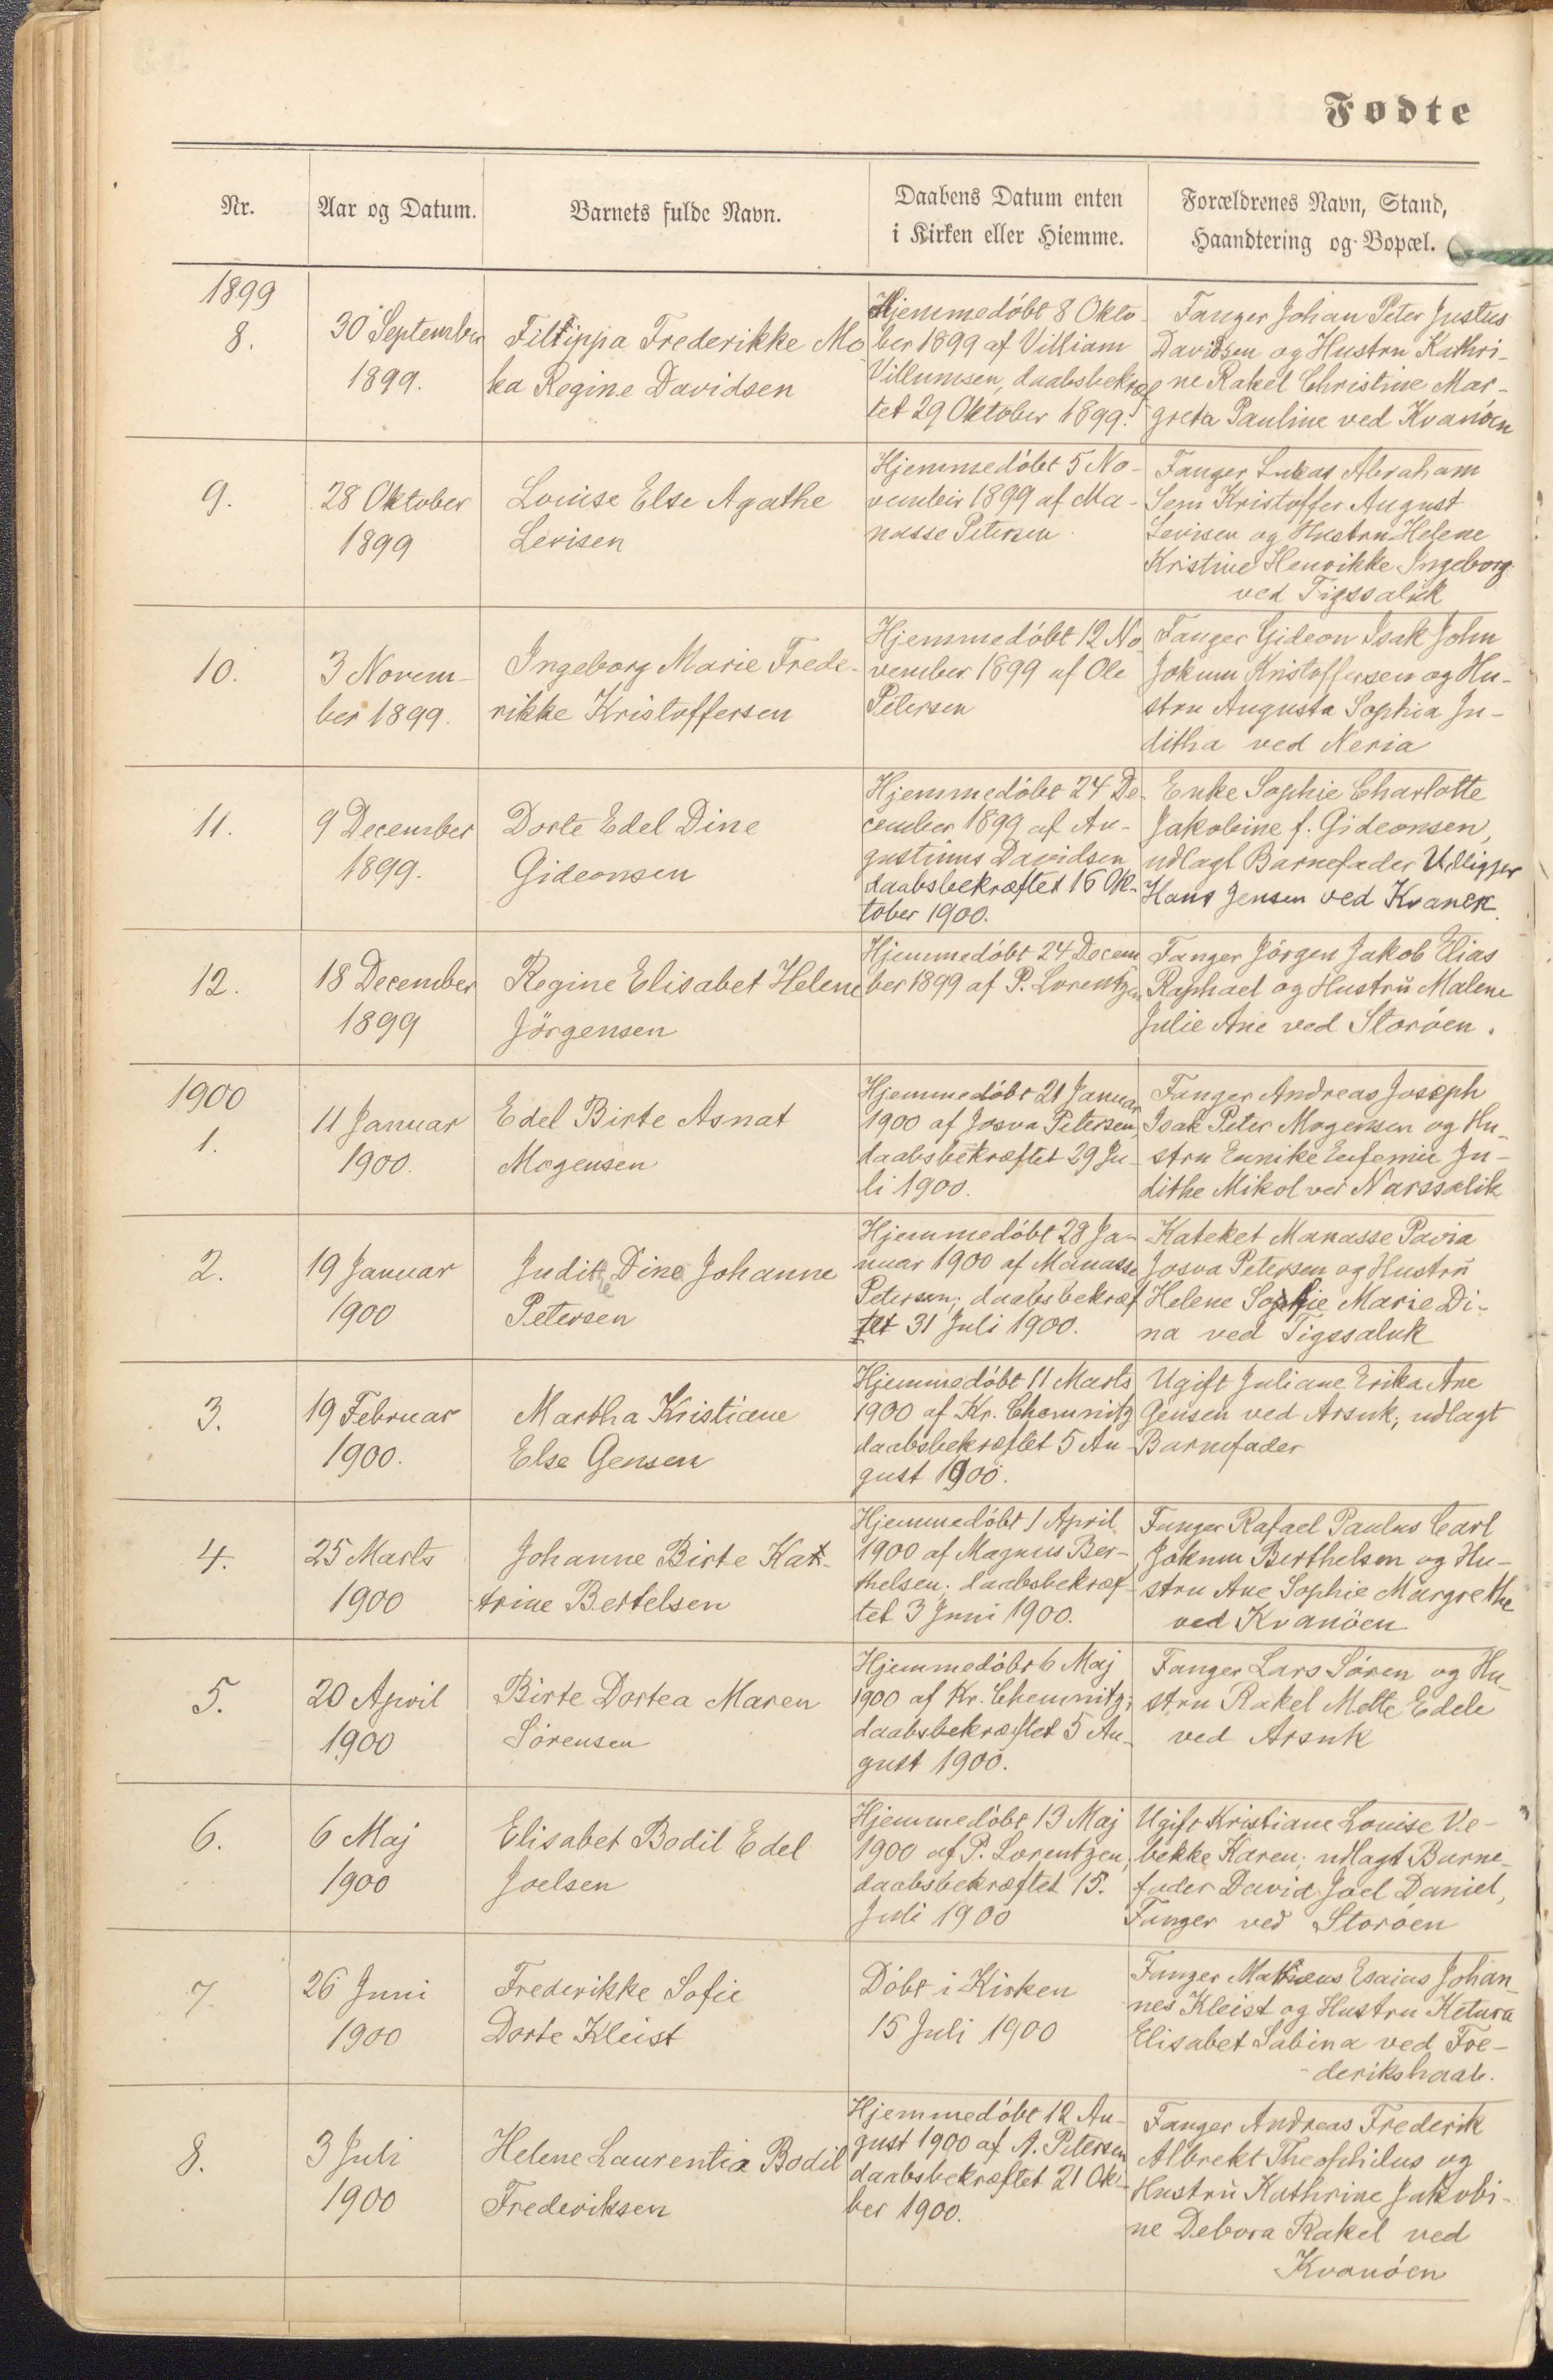 Fødte
Nr.
Aar og Datum.
Barnets fulde Navn.
Daabens Datum enten
i Kirken eller Hiemme.
Forældrenes Navn, Stand,
Haandtering og Bopæl.
1899
8.
30 September
1899.
Filippa Frederikke Mo
ka Regine Davidsen
Hjemmedöbt 8 Okto-
ber 1899 af Villiam
Villumsen, daabsbekræf
tet 29 Oktober 1899.
Fanger Johan Peter Justus
Davidsen og Hustru Kathri-
ne Rakel Christine Mar-
greta Pauline ved Kvanöen
9.
28 Oktober
1899
Louise Else Agathe
Levisen
Hjemmedöbt 5 No-
vember 1899 af Ma-
nasse Petersen
Fanger Lukas Abraham
Sem Kristoffer August
Levisen og Hustru Helene
Kristine Henrikke Ingeborg
ved Tigssaluk
10.
3 Novem-
ber 1899.
Ingeborg Marie Frede-
rikke Kristoffersen
Hjemmedöbt 12 No
vember 1899 af Ole
Petersen
Fanger Gideon Isak John
Jokum Kristoffersen og Hu-
stru Augusta Sophia Ju-
ditha ved Neria
11.
9 December
1899.
Dorte Edel Dine
Gideonsen
Hjemmedöbt 24 De-
cember 1899 af Au-
gustinus Davidsen
daabsbekræftet 16 Ok-
tober 1900.
Enke Sophie Charlotte
Jakobine f. Gideonsen,
udlagt Barnefader Udligger
Hans Jensen ved Kvanek.
12.
18 December
1899
Regine Elisabet Helene
Jörgensen
Hjemmedöbt 24 Decem
ber 1899 af P. Lorentzen
Fanger Jörgen Jakob Elias
Raphael og Hustru Malene
Julie Ane ved Storöen.
1900
1.
11 Januar
1900.
Edel Birte Asnat
Mogensen
Hjemmedöbt 21 Januar
1900 af Josva Petersen,
daabsbekræftet 29 Ju-
li 1900.
Fanger Andreas Joseph
Isak Peter Mogensen og Hu-
stru Eunike Eufemie Ju-
dithe Mikol ved Narssalik
2.
19 Januar
1900
Judite Dine Johanne
Petersen
Hjemmedöbt 28 Ja-
nuar 1900 af Manasse
Petersen; daabsbekræf
tet 31 Juli 1900.
Kateket Manasse Pavia
Josva Petersen og Hustru
Helene Sophie Marie Di-
na ved Tigssaluk
3.
19 Februar
1900.
Martha Kristiane
Else Gensen
Hjemmedöbt 11 Marts
1900 af Kr. Chemnitz
daabsbekræftet 5 Au-
gust 1900.
Ugift Juliane Erika Ane
Gensen ved Arsuk; udlagt
Barnefader
4.
25 Marts
1900
Johanne Birte Kat-
trine Bertelsen
Hjemmedöbt 1 April
1900 af Magnus Ber-
thelsen; daabsbekræf-
tet 3 Juni 1900.
Fanger Rafael Paulus Carl
Jokum Berthelsen og Hu-
stru Ane Sophie Margrethe
ved Kvanöen
5.
20 April
1900
Birte Dortea Maren
Sörensen
Hjemmedöbt 6 Maj
1900 af Kr. Chemnitz;
daabsbekræftet 5 Au-
gust 1900.
Fanger Lars Sören og Hu-
stru Rakel Mette Edele
ved Arsuk
6.
6 Maj
1900
Elisabet Bodil Edel
Joelsen
Hjemmedöbt 13 Maj
1900 af P. Lorentzen;
daabsbekræftet 15.
Juli 1900
Ugift Kristiane Louise Ve-
bekke Karen; udlagt Barne-
fader David Joel Daniel,
Fanger ved Storöen
7.
26 Juni
1900
Frederikke Sofie
Dorte Kleist
Döbt i Kirken
15 Juli 1900
Fanger Mathæus Esaias Johan-
nes Kleist og Hustru Ketura
Elisabet Sabina ved Fre-
derikshaab.
8.
3 Juli
1900
Helene Laurentia Bodil
Frederiksen
Hjemmedöbt 12 Au-
gust 1900 af A. Petersen
daabsbekræftet 21 Okt-
ber 1900.
Fanger Andreas Frederik
Albrekt Theophilus og
Hustru Kathrine Jakobi-
ne Debora Rakel ved
Kvanöen